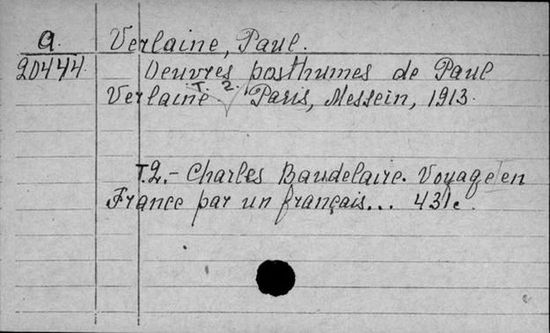 a. Verlaine, Paul.
20444 Oeuvres posthumes de Paul
Verlaine. T. 2. Paris, Messein, 1913.
T.2.- Charles Baudelaire. Voyage en
France par un français... 431c.